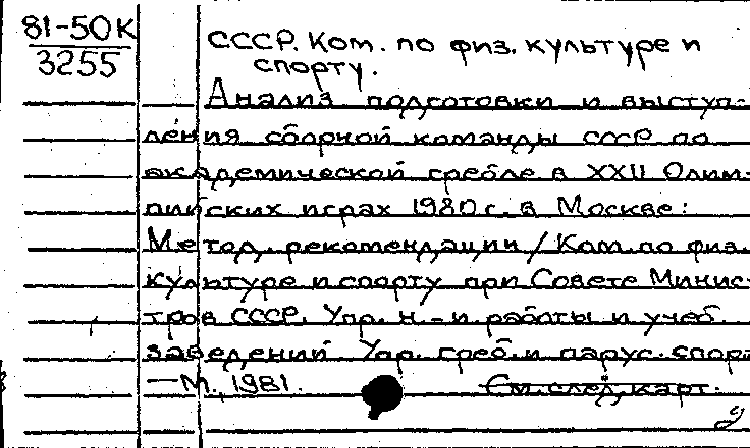 81-50К
3255
СССР. Ком. по физ. культуре и
спорту.
Анализ подготовки и выступ-
ления сборной команды СССР по
академической гребле в XXII Олим-
пийских играх 1980 г. в Москве:
Метод. рекомендации / Ком. по физ.
культуре и спорту при Совете Минис-
тров СССР. Упр. н.-и работы и учеб.
заведений Упр. греб. и парус. спорт
— М., 1981.
См. след. карт.